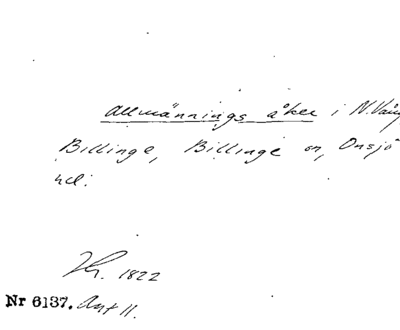 Allmännings åker i N. Vång
Billinge, Billinge sn, Onsjö
hd.
1822
Nr 6137. Ant 11.